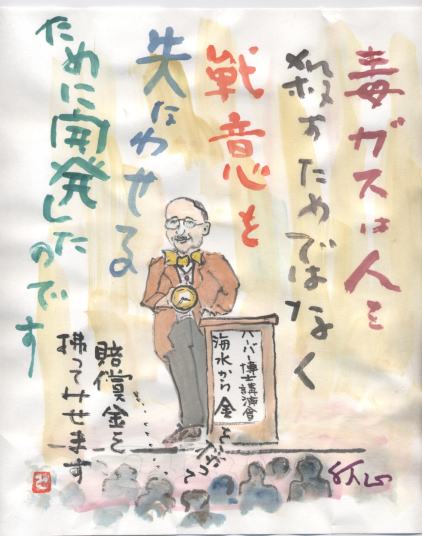 毒ガスは人を
殺すためではなく
戦意を
失なわせる
ために開発したのです
ハーバー博士講演會
海水から金を
賠償金を
拂ってみせます